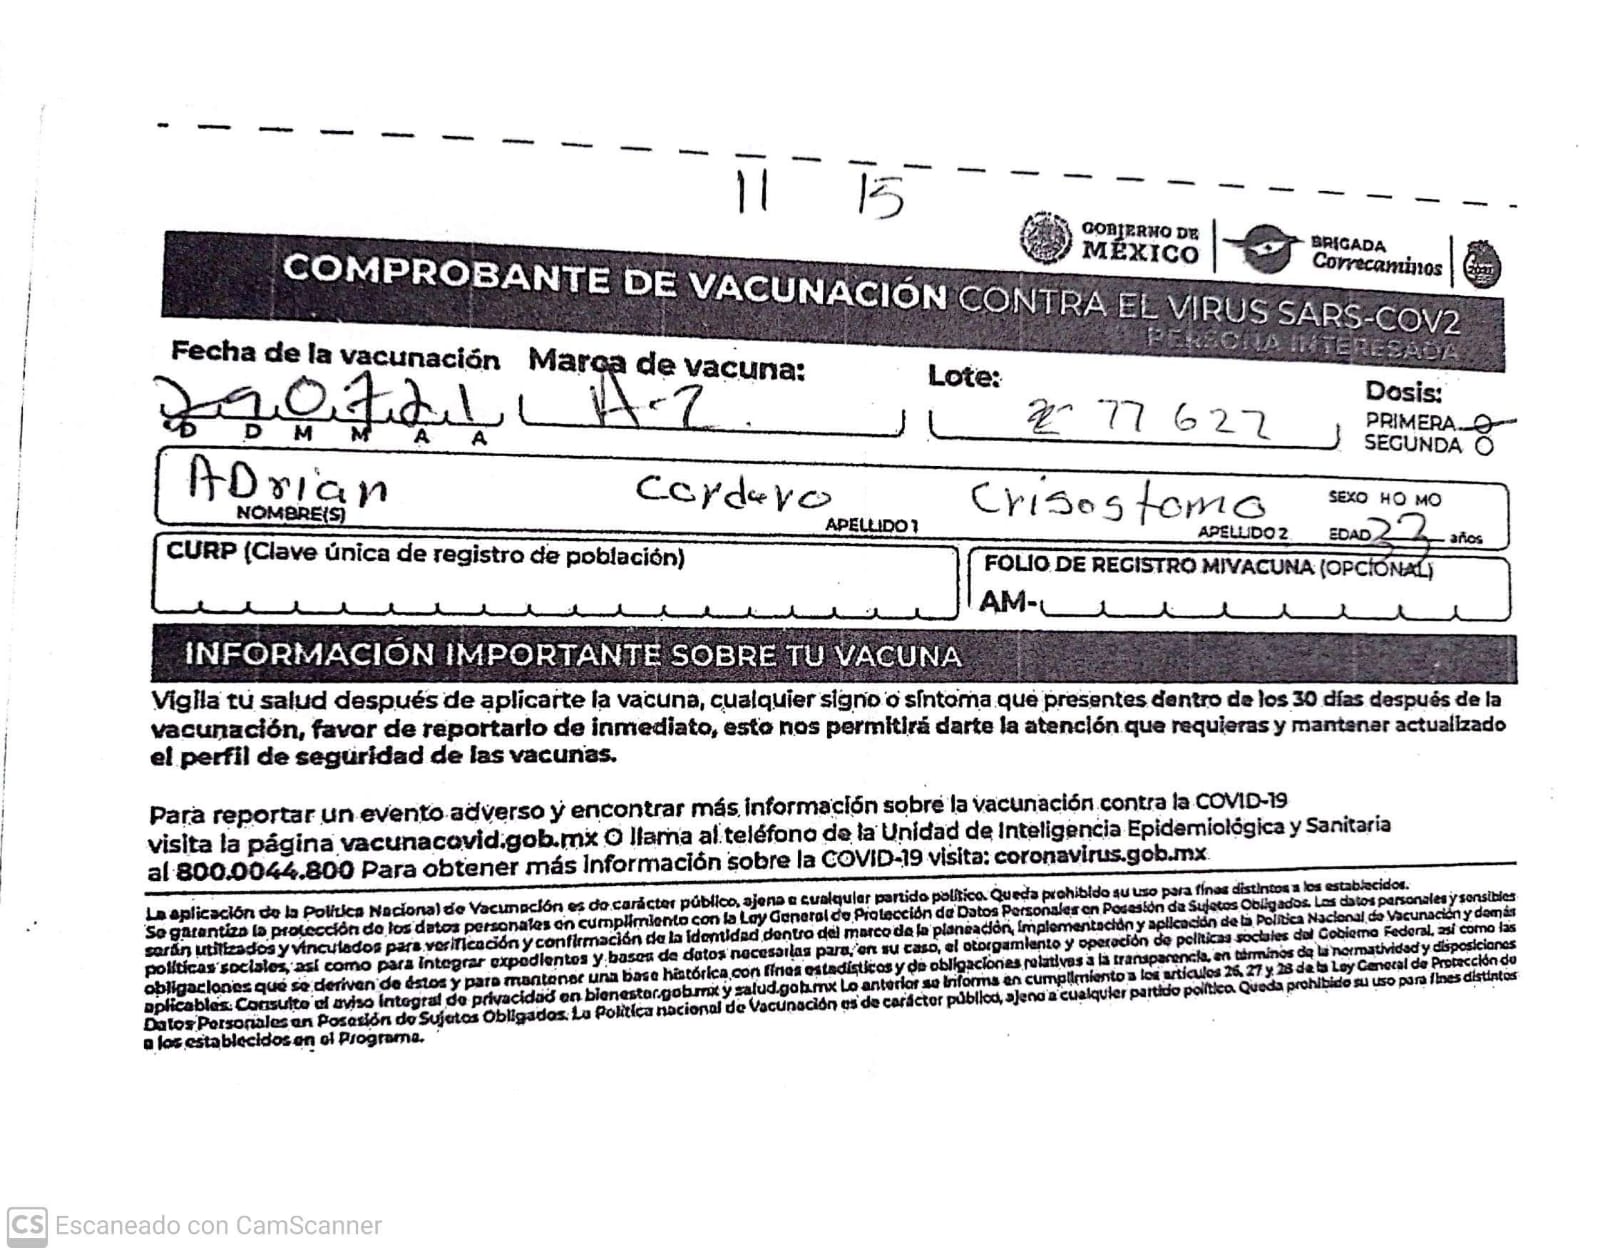 11 15
GOBIERNO DE MÉXICO
BRIGADA Correcaminos
COMPROBANTE DE VACUNACIÓN CONTRA EL VIRUS SARS-COV2
PERSONA INTERESADA
Fecha de la vacunación Marca de vacuna: Lote: Dosis:
290721 A-Z 77627 PRIMERA
D D M M A A SEGUNDA
ADrian Cordero Crisostomo SEXO HO MO
NOMBRE(S) APELLIDO 1 APELLIDO 2 EDAD 33 años
CURP (Clave única de registro de población) FOLIO DE REGISTRO MIVACUNA (OPCIONAL)
AM-
INFORMACIÓN IMPORTANTE SOBRE TU VACUNA
Vigila tu salud después de aplicarte la vacuna, cualquier signo o síntoma que presentes dentro de los 30 días después de la
vacunación, favor de reportarlo de inmediato, esto nos permitirá darte la atención que requieras y mantener actualizado
el perfil de seguridad de las vacunas.
Para reportar un evento adverso y encontrar más información sobre la vacunación contra la COVID-19
visita la página vacunacovid.gob.mx O llama al teléfono de la Unidad de Inteligencia Epidemiológica y Sanitaria
al 800.0044.800 Para obtener más información sobre la COVID-19 visita: coronavirus.gob.mx
La aplicación de la Política Nacional de Vacunación es de carácter público, ajena a cualquier partido político. Queda prohibido su uso para fines distintos a los establecidos.
Se garantiza la protección de los datos personales en cumplimiento con la Ley General de Protección de Datos Personales en Posesión de Sujetos Obligados. Los datos personales y sensibles
serán utilizados y vinculados para verificación y confirmación de la identidad dentro del marco de la planeación, implementación y aplicación de la Política Nacional de Vacunación y demás
políticas sociales, así como para integrar expedientes y bases de datos necesarias para, en su caso, el otorgamiento y operación de políticas sociales del Gobierno Federal, así como las
obligaciones que se deriven de éstos y para mantener una base histórica con fines estadísticos y de obligaciones relativas a la transparencia, en términos de la normatividad y disposiciones
aplicables. Consulte el aviso integral de privacidad en bienestar.gob.mx y salud.gob.mx Lo anterior se informa en cumplimiento a los artículos 26, 27 y 28 de la Ley General de Protección de
Datos Personales en Posesión de Sujetos Obligados. La Política nacional de Vacunación es de carácter público, ajeno a cualquier partido político. Queda prohibido su uso para fines distintos
a los establecidos en el Programa.
CS Escaneado con CamScanner